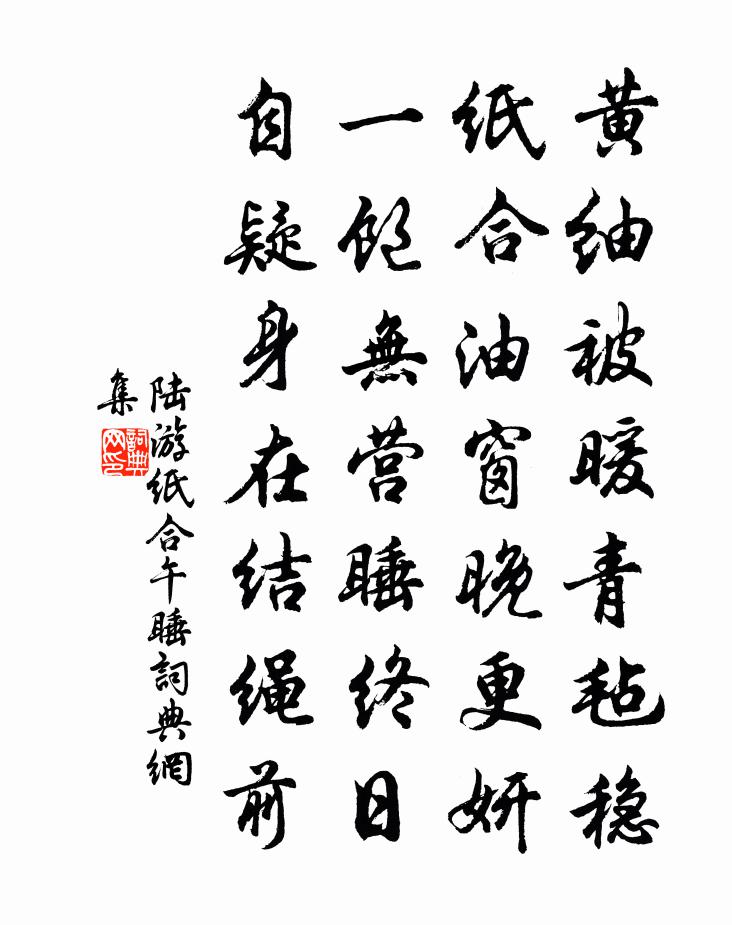 黄紬被暖青毡稳
纸合油窗晚更妍
一饱無营睡终日
自疑身在结绳前
陆游纸合午睡詞典網
集
詞典
网印